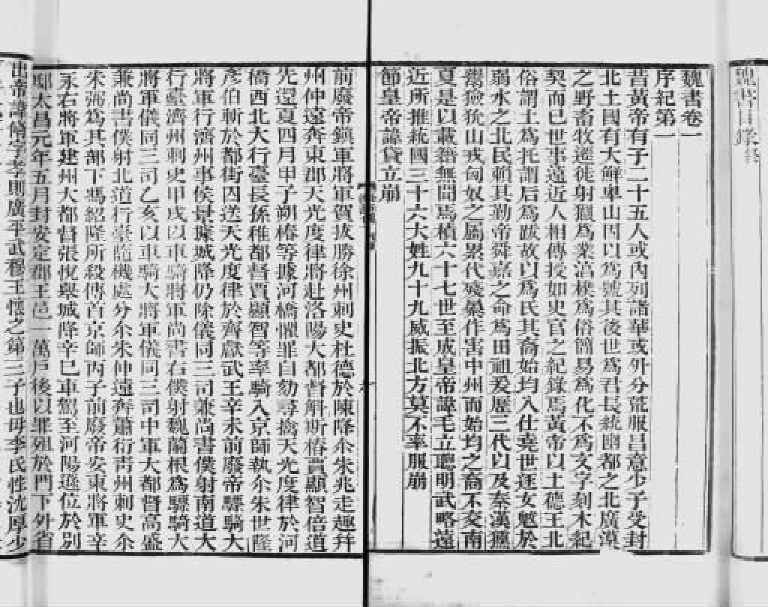 魏書目錄終
魏書卷一
序紀第一
昔黃帝有子二十五人或內列諸華或外分荒服昌意少子受封
北土國有大鮮卑山因以為號其後世為君長統幽都之北廣漠
之野畜牧遷徙射獵為業淳樸為俗簡易為化不為文字刻木紀
契而已世事遠近人相傳授如史官之紀錄焉黃帝以土德王北
俗謂土為托謂后為跋故以為氏其裔始均入仕堯世逐女魃於
弱水之北民賴其勤帝舜嘉之命為田祖爰歷三代以及秦漢獯
鬻獫狁山戎匈奴之屬累代殘暴作害中州而始均之裔不交南
夏是以載籍無聞焉積六十七世至成皇帝諱毛立聰明武略遠
近所推統國三十六大姓九十九威振北方莫不率服崩
節皇帝諱貸立崩
前廢帝鎮軍將軍賀拔勝徐州刺史杜德於陳降尒朱兆走趣并
州仲遠奔東郡天光度律將赴洛陽大都督斛斯椿賈顯智倍道
先還夏四月甲子朔椿等據河橋懼罪自劾尋擒天光度律於河
橋西北大行臺長孫稚都督賈顯智等率騎入京師執尒朱世隆
彥伯斬於都街囚送天光度律於齊獻武王辛未前廢帝驃騎大
將軍行濟州事侯景據城降仍除儀同三司兼尚書僕射南道大
行臺濟州刺史甲戌以車騎將軍尚書右僕射魏蘭根為驃騎大
將軍儀同三司乙亥以車騎大將軍儀同三司中軍大都督高盛
兼尚書僕射北道行臺隨機處分尒朱仲遠奔蕭衍青州刺史尒
朱弼為其部下馮紹隆所殺傳首京師丙子前廢帝安東將軍辛
永右將軍建州大都督張悅舉城降辛巳車駕至河陽遜位於別
邸太昌元年五月封安定郡王邑一萬戶後以罪殂於門下外省
出帝諱脩字孝則廣平武穆王懷之第三子也母李氏性沈厚少